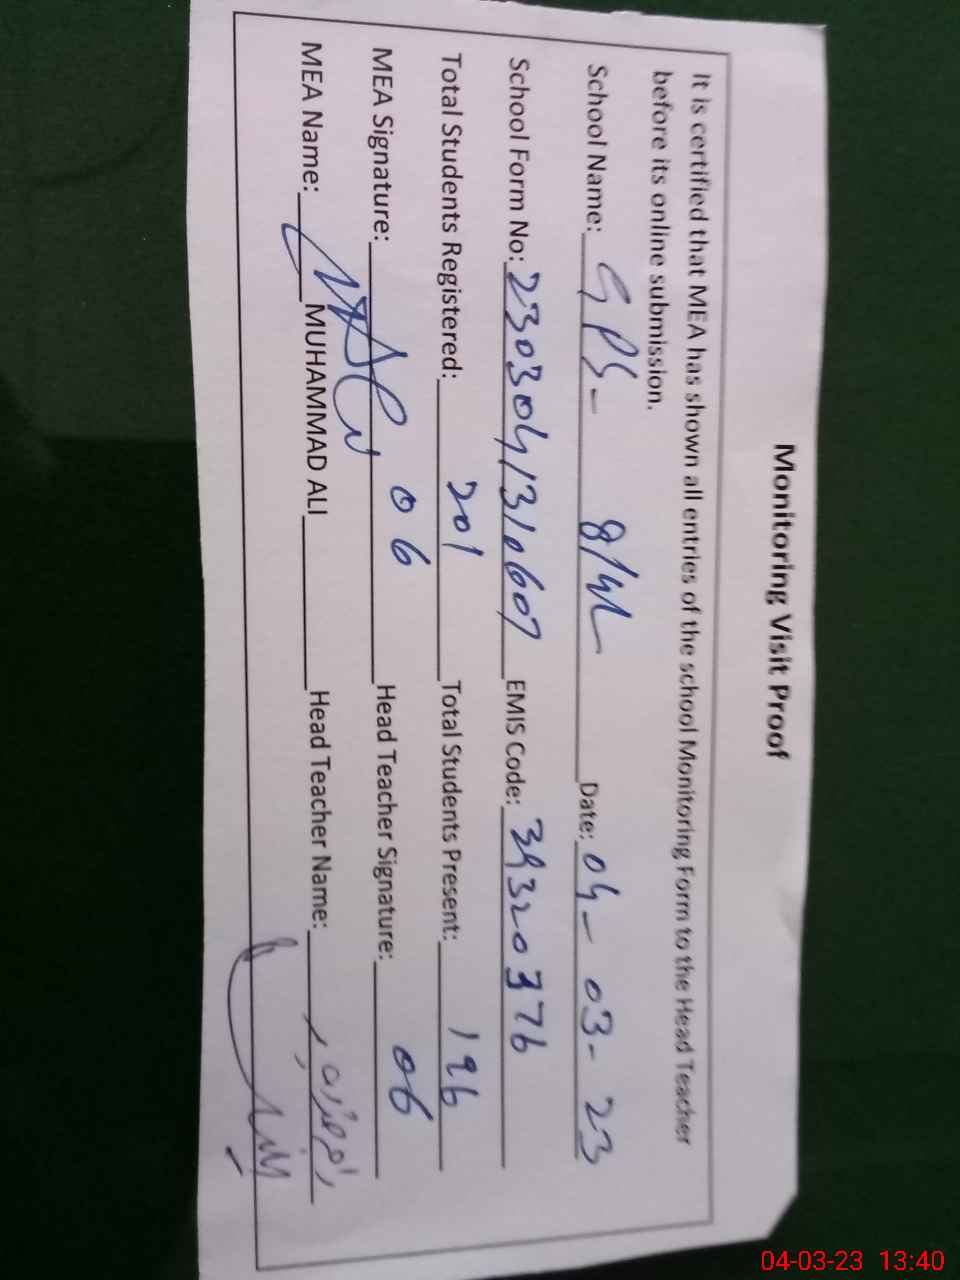 Monitoring Visit Proof
It is certified that MEA has shown all entries of the school Monitoring Form to the Head Teacher
before its online submission.
School Name: GPS- 8/4L Date: 04-03-23
School Form No: 2303041310607 EMIS Code: 39320376
Total Students Registered: 201 Total Students Present: 196
06 06
MEA Signature: Head Teacher Signature:
MEA Name: MUHAMMAD ALI Head Teacher Name:
04-03-23 13:40